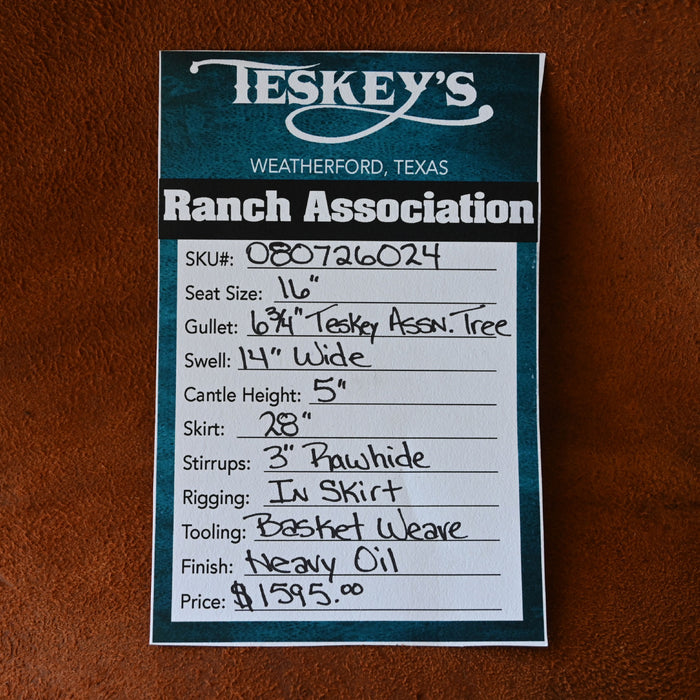 TESKEY'S
WEATHERFORD, TEXAS
Ranch Association
SKU#: 080726024
Seat Size: 16"
Gullet: 6¾" Teskey Assn. Tree
Swell: 14" Wide
Cantle Height: 5"
Skirt: 28"
Stirrups: 3" Rawhide
Rigging: In Skirt
Tooling: Basket Weave
Finish: Heavy Oil
Price: $1595.00